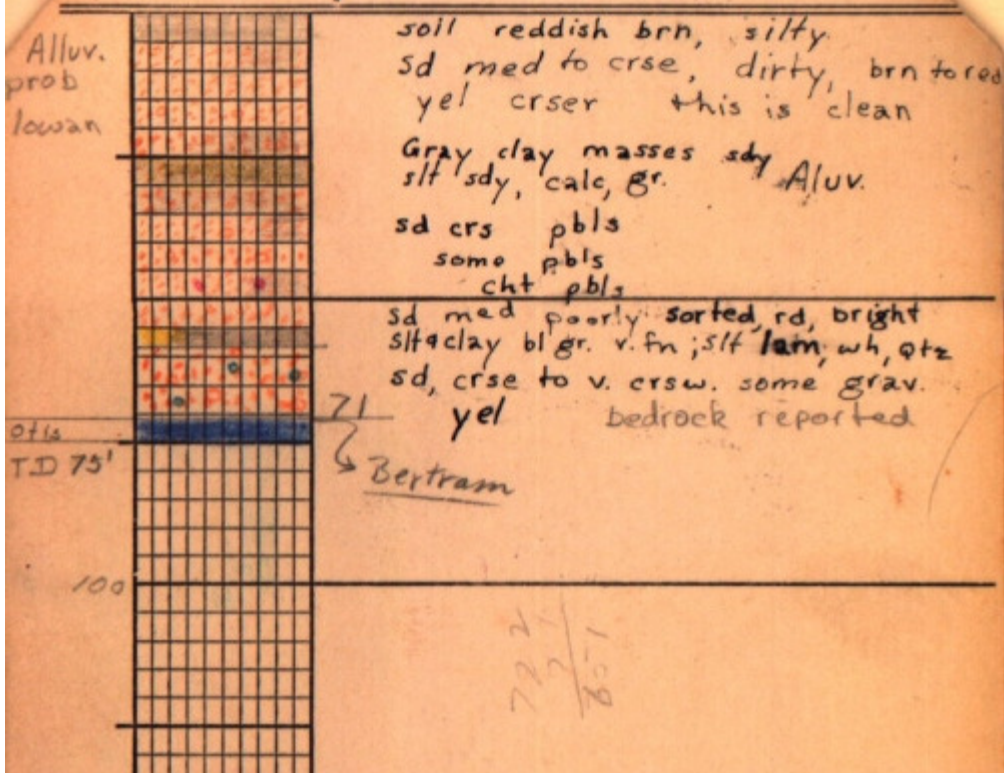 Alluv.
prob
Iowan
soil reddish brn, silty
sd med to crse, dirty, brn to red
yel crser this is clean
Gray clay masses sdy
slt sdy, calc, gr. Aluv.
sd crs pbls
some pbls
cht pbls
sd med poorly sorted, rd, bright
slt & clay bl gr. v. fn; slt lam, wh, qtz
sd, crse to v. crsw. some grav.
71 yel bedrock reported
Otis
T.D 75'
Bertram
100
722
71
651